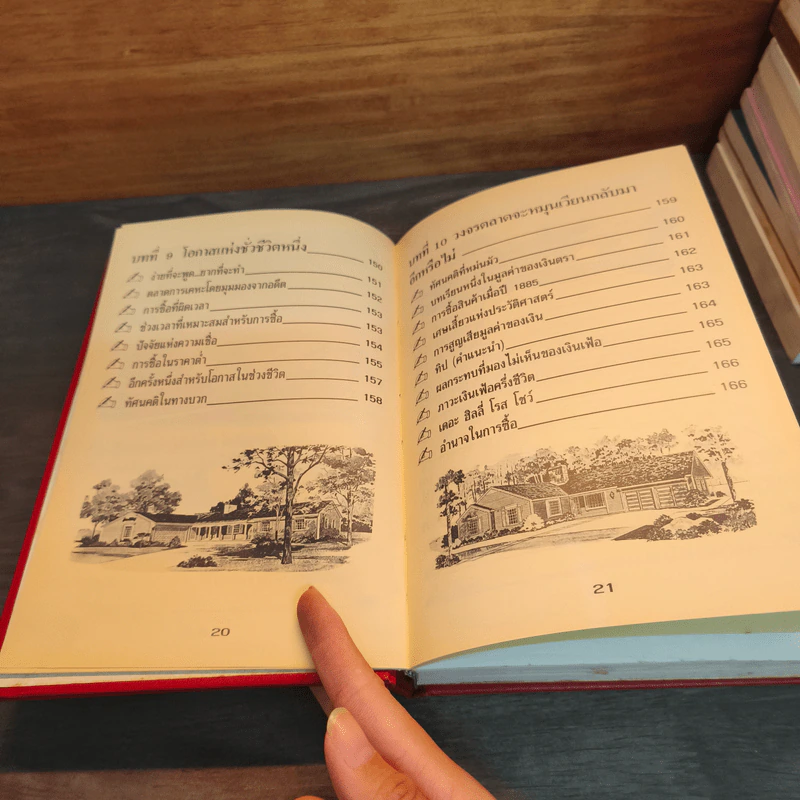 บทที่ 9 โอกาสแห่งชั่วชีวิตหนึ่ง 150
ง่ายที่จะพูด...ยากที่จะทำ 151
ตลาดการเคหะโดยมุมมองจากอดีต 152
การซื้อที่ผิดเวลา 153
ช่วงเวลาที่เหมาะสมสำหรับการซื้อ 153
ปัจจัยแห่งความเชื่อ 154
การซื้อในราคาต่ำ 155
อีกครั้งหนึ่งสำหรับโอกาสในช่วงชีวิต 157
ทัศนคติในทางบวก 158
20
บทที่ 10 วงจรตลาดจะหมุนเวียนกลับมา
อีกหรือไม่ 159
ทัศนคติที่หม่นมัว 160
บทเรียนหนึ่งในมูลค่าของเงินตรา 161
การซื้อสินค้าเมื่อปี 1885 162
เศษเสี้ยวแห่งประวัติศาสตร์ 163
การสูญเสียมูลค่าของเงิน 163
ทิป (คำแนะนำ) 164
ผลกระทบที่มองไม่เห็นของเงินเฟ้อ 165
ภาวะเงินเฟ้อครึ่งชีวิต 165
เดอะ ฮิลลี่ โรส โชว์ 166
อำนาจในการซื้อ 166
21